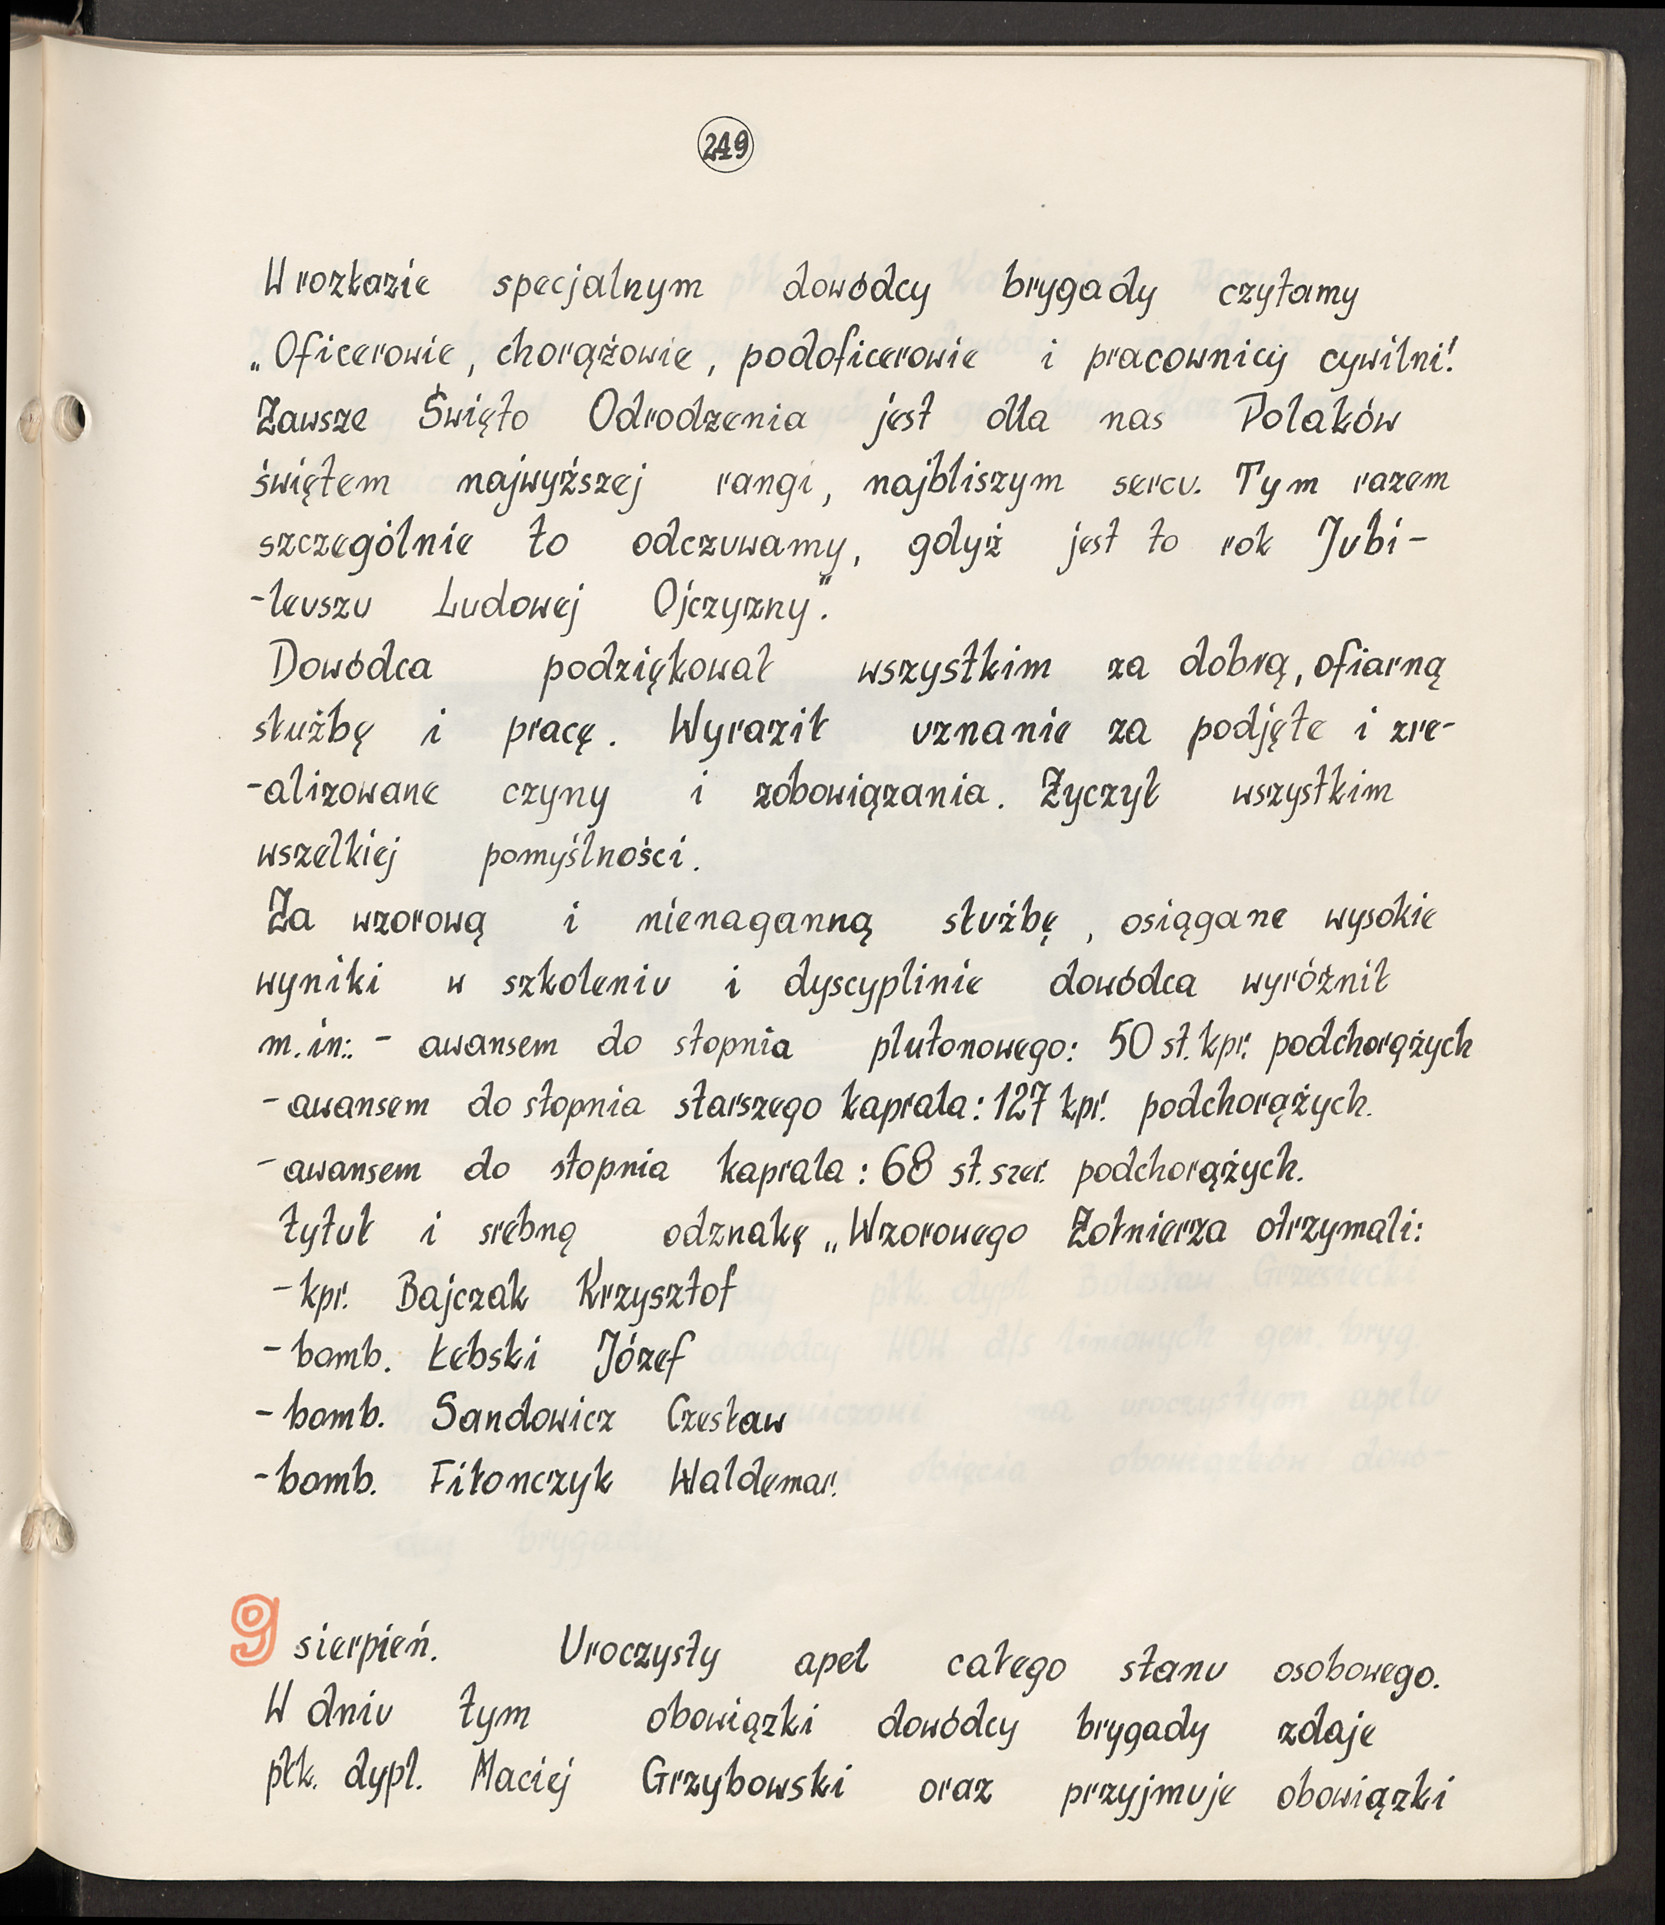 249
W rozkazie specjalnym dowódcy brygady czytamy
„Oficerowie, chorążowie, podoficerowie i pracownicy cywilni!
Zawsze Święto Odrodzenia jest dla nas Polaków
świętem najwyższej rangi, najbliszym sercu. Tym razem
szczególnie to odczuwamy, gdyż jest to rok Jubi-
-leuszu Ludowej Ojczyzny".
Dowódca podziękował wszystkim za dobrą, ofiarną
służbę i pracę. Wyraził uznanie za podjęte i zre-
-alizowane czyny i zobowiązania. Życzył wszystkim
wszelkiej pomyślności.
Za wzorową i nienaganną służbę, osiągane wysokie
wyniki w szkoleniu i dyscyplinie dowódca wyróżnił
m.in.: - awansem do stopnia plutonowego: 50 st. kpr. podchorążych
- awansem do stopnia starszego kaprala: 127 kpr. podchorążych.
- awansem do stopnia kaprala: 68 st. szer. podchorążych.
tytuł i srebną odznakę „Wzorowego Żołnierza otrzymali:
- kpr. Bajczak Krzysztof
- bomb. Łebski Józef
- bomb. Sandowicz Czesław
- bomb. Fitonczyk Waldemar.
9 sierpień. Uroczysty apel całego stanu osobowego.
W dniu tym obowiązki dowódcy brygady zdaje
płk. dypl. Maciej Grzybowski oraz przyjmuje obowiązki